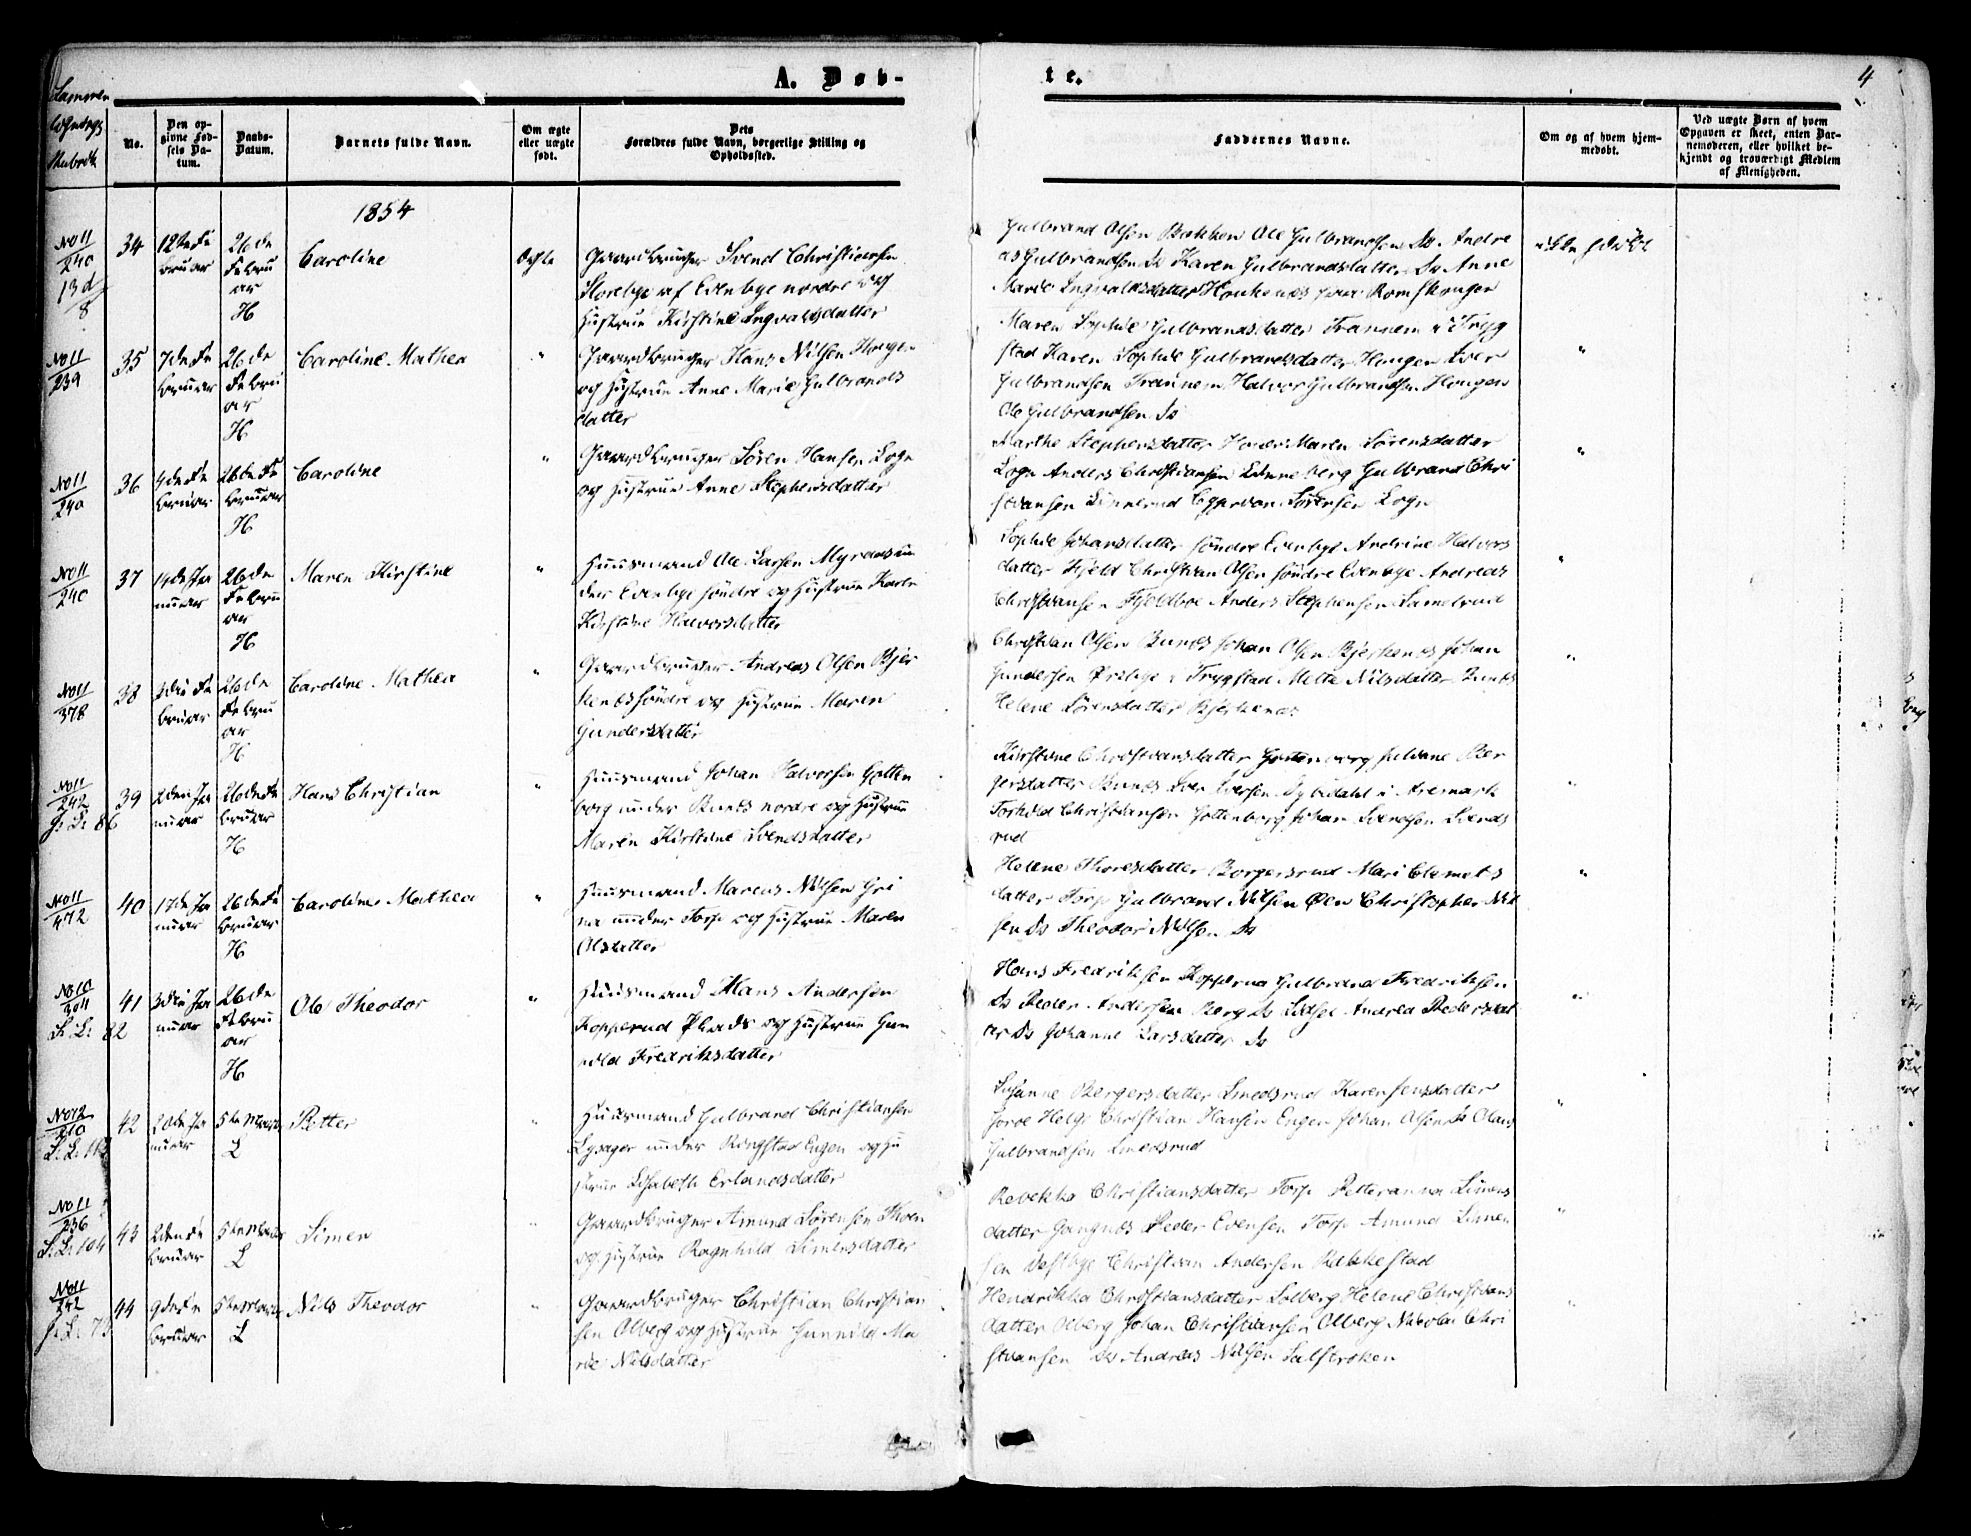 A. Døb-
te.
4
Sammen
No.
Den op-
givne Fød-
sels Da-
tum.
Daabs-
Datum.
Barnets fulde Navn.
Om ægte
eller uægte
født.
Dets
Forældres fulde Navn, borgerlige Stilling og
Opholdssted.
Faddernes Navne.
Om og af hvem hjem-
medøbt.
Ved uægte Børn af hvem
Opgaven er skeet, enten Bar-
nemoderen, eller hvilket be-
kjendt og troværdigt Medlem
af Menigheden.
1854
No 11
240
13d
8
34
12te Fe
bruar
26de
Febru
ar
H
Caroline
ægte
Gaardbruger Svend Christiansen
Storebye af Evenbye nordre og
Hustrue Kirstine Ingvaldsdatter
Gulbrand Olsen Bakken Ole Gulbrandsen Ds Andre
as Gulbrandsen Ds Karen Gulbrandsdatter Ds Anne
Marie Ingvaldsdatter paa Romskougen
ikke
No 11
239
35
7de Fe
bruar
26de
Febru
ar
H
Caroline Mathea
"
Gaardbruger Hans Nilsen Hougen
og Hustrue Anne Marie Gulbrands
datter
Maren Sophie Gulbrandsdatter Frannem i Tryg
stad Karen Sophie Gulbrandsdatter Hougen Iver
Gulbrandsen Frannem Halvor Gulbrandsen Hougen
Ole Gulbrandsen Ds
"
No 11
240
36
4de Fe
bruar
26de Fe
bruar
H
Caroline
"
Gaardbruger Søren Hansen Logn
og Hustrue Anne Stephensdatter
Marthe Stephensdatter Maren Sørensdatter
Logn Anders Christiansen Gulbrand Chri
stiansen Sørensen Logn
"
No 11
240
37
14de Ja
nuar
26de
Februu
ar
H
Maren Kirstine
"
Huusmand Ole Larsen Myrene un
der Evenbye søndre og Hustrue Karen
Kirstine Halvorsdatter
Sophie Johansdatter søndre Evenbye Andrine Halvors
datter Christian Olsen søndre Evenbye Andreas
Christiansen Fjeldboe Anders Stephensen Samelrud
"
No 11
378
38
3die Fe
bruar
26de
Febru
ar
H
Caroline Mathea
"
Gaardbruger Andreas Olsen Bjer
kenes søndre og Hustrue Maren
Gundersdatter
Christian Olsen Bunes Johan Olsen Bjerkenes Johan
Gundersen i Trygstad Mette Nilsdatter Bunes
Helene Sørensdatter Bjerkenes
"
No 11
242
J: L: 86
39
2den Ja
nuar
26de Fe
bruar
H
Hans Christian
"
Huusmand Johan Halvorsen Gotten
borg under Bunes nordre og Hustrue
Maren Kirstine Svendsdatter
Kirstine Christiansdatter Gottenborg Juliane Ber
gersdatter Bunes Iver Iversen i Aremark
Torkild Christiansen Gottenborg Johan Svendsen Svends
rud
"
No 11
472
40
17de Ja
nuar
26de Fe
bruar
H
Caroline Mathea
"
Huusmand Marcus Nilsen Gri
na under Torp og Hustrue Maren
Olsdatter
Helene Thoresdatter Borgersrud Mari Clemets
datter Torp Gulbrand Nilsen Øen Christopher Nil
sen Ds Theodor Nilsen Ds
"
No 10
204
L: L: 82
41
3die Ja
nuar
26de
Februu
ar
H
Ole Theodor
"
Huusmand Hans Andersen
Kopperud Plads og Hustrue Gun
nild Fredriksdatter
Hans Fredriksen Kopperud Gulbrand Fredriksen
Ds Peder Andersen Berg Ds Andrea Pedersdat
ter Ds Johanne Larsdatter Ds
"
No 12
210
42
20de Ja
nuar
5te Marts
L
Petter
"
Huusmand Gulbrand Christiansen
Lysager under Ringstad Engen og Hu
strue Lisabeth Erlandsdatter
Susanne Bergersdatter Smedsrud Karen Jensdatter
Helge Christian Hansen Engen Johan Olsen Ds Olaus
Gulbrandsen Smedsrud
"
No 11
236
L: L: 104
43
2den Fe
bruar
5te Marts
L
Simen
"
Gaardbruger Amund Sørensen Thoen
og Hustrue Ragnhild Simensdatter
Rebekka Christiansdatter Torp Petteranna Simens
datter Gangnes Peder Evensen Torp Amund Simen
sen Vestbye Christian Andersen Rakkestad
"
No 11
242
J: L: 73
44
9de Fe
bruar
5te Marts
L
Nils Theodor
"
Gaardbruger Christian Christian
sen Olberg og Hustrue Gunnild Ma
rie Nilsdatter
Hendrikka Christiansdatter Solberg Helene Christians
datter Olberg Johan Christiansen Olberg Nikolai Chri
stiansen Ds Andreas Nilsen
"